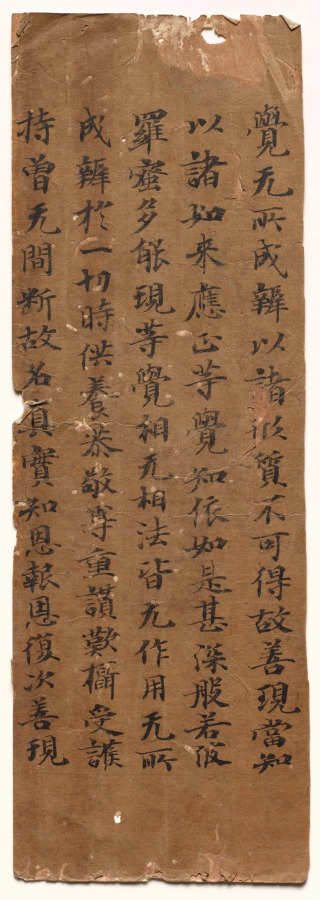 覺无所成辦以諸形質不可得故善現當知
以諸如來應正等覺知依如是甚深般若波
羅蜜多能現等覺相无相法皆无作用无所
成辦於一切時供養恭敬尊重讃歎攝受護
持曾无間断故名真實知恩報恩復次善現